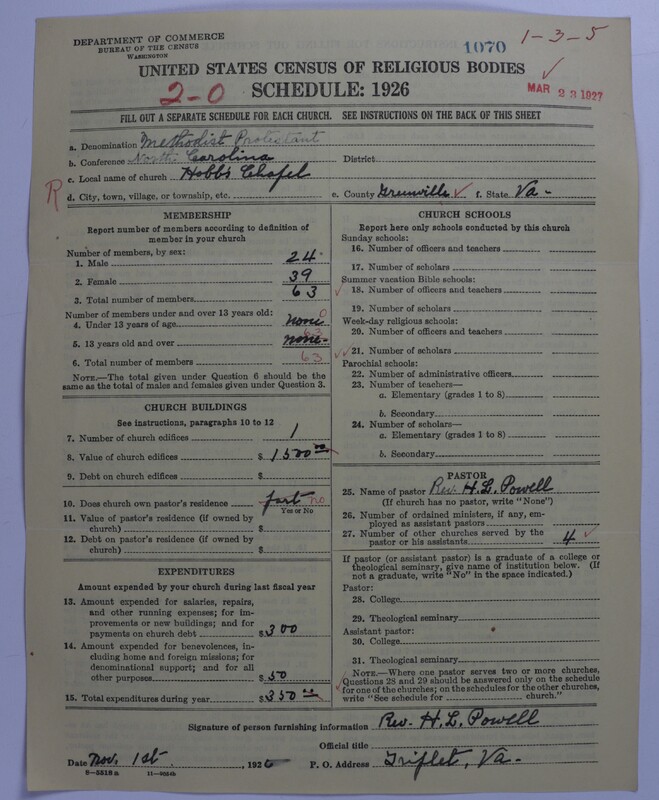 DEPARTMENT OF COMMERCE
BUREAU OF THE CENSUS
WASHINGTON
1070
1-3-5
UNITED STATES CENSUS OF RELIGIOUS BODIES
2-0 SCHEDULE: 1926
MAR 23 1927
FILL OUT A SEPARATE SCHEDULE FOR EACH CHURCH. SEE INSTRUCTIONS ON THE BACK OF THIS SHEET
a. Denomination Methodist Protestant
b. Conference North Carolina District
c. Local name of church Hobbs Chapel
R
d. City, town, village, or township, etc. e. County Greenville ✓ f. State Va-
MEMBERSHIP
Report number of members according to definition of
member in your church
Number of members, by sex:
1. Male 24
2. Female 39
3. Total number of members 63
Number of members under and over 13 years old:
4. Under 13 years of age none 0
5. 13 years old and over none 63
6. Total number of members 63
NOTE.—The total given under Question 6 should be the
same as the total of males and females given under Question 3.
CHURCH BUILDINGS
See instructions, paragraphs 10 to 12
7. Number of church edifices 1
8. Value of church edifices $ 1500 00
9. Debt on church edifices $
10. Does church own pastor's residence part no
Yes or No
11. Value of pastor's residence (if owned by
church) $
12. Debt on pastor's residence (if owned by
church) $
EXPENDITURES
Amount expended by your church during last fiscal year
13. Amount expended for salaries, repairs,
and other running expenses; for im-
provements or new buildings; and for
payments on church debt $ 300
14. Amount expended for benevolences, in-
cluding home and foreign missions; for
denominational support; and for all
other purposes $ 50
15. Total expenditures during year $ 350 00
CHURCH SCHOOLS
Report here only schools conducted by this church
Sunday schools:
16. Number of officers and teachers
17. Number of scholars
Summer vacation Bible schools:
18. Number of officers and teachers
19. Number of scholars
Week-day religious schools:
20. Number of officers and teachers
21. Number of scholars
Parochial schools:
22. Number of administrative officers
23. Number of teachers—
a. Elementary (grades 1 to 8)
b. Secondary
24. Number of scholars—
a. Elementary (grades 1 to 8)
b. Secondary
PASTOR
25. Name of pastor Rev. H. L. Powell
(If church has no pastor, write "None")
26. Number of ordained ministers, if any, em-
ployed as assistant pastors
27. Number of other churches served by the
pastor or his assistants 4 ✓
If pastor (or assistant pastor) is a graduate of a college or
theological seminary, give name of institution below. (If
not a graduate, write "No" in the space indicated.)
Pastor:
28. College
29. Theological seminary
Assistant pastor:
30. College
31. Theological seminary
NOTE.—Where one pastor serves two or more churches,
Questions 28 and 29 should be answered only on the schedule
for one of the churches; on the schedules for the other churches,
write "See schedule for church."
Signature of person furnishing information Rev. H. L. Powell
Official title
Date Nov. 1st, 1926 P. O. Address Triplet, Va-
8-5518a